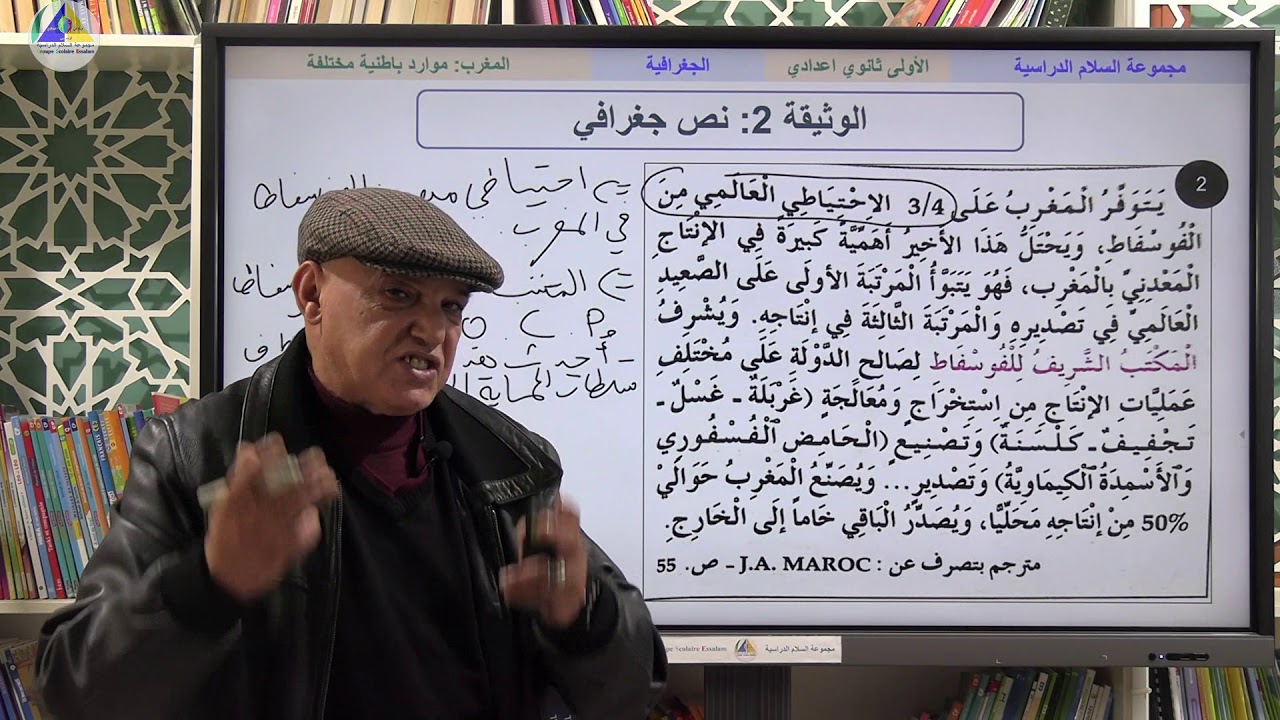 مجموعة السلام الدراسية
Groupe Scolaire Essalam
مجموعة السلام الدراسية
الأولى ثانوي اعدادي
الجغرافية
المغرب: موارد باطنية مختلفة
الوثيقة 2: نص جغرافي
2
يَتَوَفَّرُ الْمَغْرِبُ عَلَى 3/4 الاِحْتِيَاطِي الْعَالَمِي مِنَ
الْفُوسْفَاطِ، وَيَحْتَلُّ هَذَا الأَخِيرُ أَهَمِّيَّةً كَبِيرَةً فِي الإِنْتَاجِ
الْمَعْدِنِيِّ بِالْمَغْرِب، فَهُوَ يَتَبَوَّأُ الْمَرْتَبَةَ الأُولَى عَلَى الصَّعِيدِ
الْعَالَمِيِّ فِي تَصْدِيرِهِ وَالْمَرْتَبَةَ الثَّالِثَةَ فِي إِنْتَاجِهِ. وَيُشْرِفُ
الْمَكْتَبُ الشَّرِيفُ لِلْفُوسْفَاط لِصَالِحِ الدَّوْلَةِ عَلَى مُخْتَلِفِ
عَمَلِيَّاتِ الإِنْتَاجِ مِنِ اِسْتِخْرَاجٍ وَمُعَالَجَةٍ (غَرْبَلَةٌ ـ غَسْلٌ ـ
تَجْفِيفٌ ـ كَلْسَنَةٌ) وَتَصْنِيعٍ (الْحَامِضُ الْفُسْفُورِي
وَالأَسْمِدَةُ الْكِيمَاوِيَّةُ) وَتَصْدِيرٍ... وَيُصَنِّعُ الْمَغْرِبُ حَوَالَيْ
50% مِنْ إِنْتَاجِهِ مَحَلِّيًّا، وَيُصَدَّرُ الْبَاقِي خَاماً إِلَى الْخَارِجِ.
مترجم بتصرف عن : J.A. MAROC - ص. 55
احتياطي
في المغرب.
المكتب
O C. P.
- أحدث
سلطات الحماية
Groupe Scolaire Essalam
مجموعة السلام الدراسية